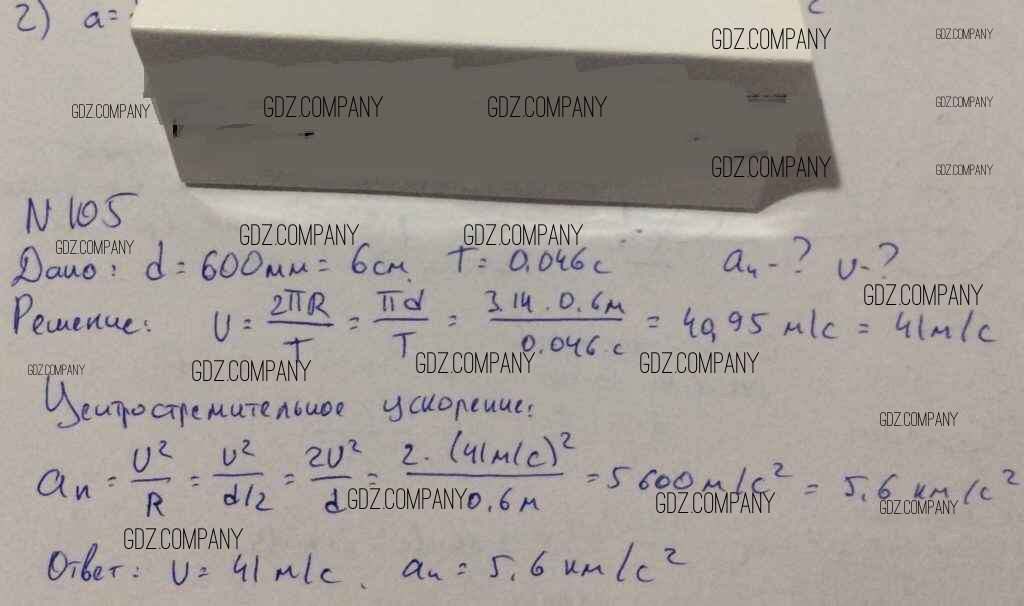 2) a=
GDZ.COMPANY GDZ.COMPANY
GDZ.COMPANY GDZ.COMPANY GDZ.COMPANY GDZ.COMPANY
GDZ.COMPANY GDZ.COMPANY
N 105
GDZ.COMPANY GDZ.COMPANY GDZ.COMPANY
Дано: d = 600мм = 6см T = 0.046с aₙ - ? υ - ?
GDZ.COMPANY
Решение: υ = 2πR/T = πd/T = 3.14 · 0.6м/0.046с = 40,95 м/с = 41м/с
GDZ.COMPANY GDZ.COMPANY GDZ.COMPANY GDZ.COMPANY
Центростремительное ускорение:
GDZ.COMPANY
aₙ = υ²/R = υ²/d/2 = 2υ²/d = 2 · (41м/с)²/0.6м = 5600м/с² = 5,6 км/с²
GDZ.COMPANY GDZ.COMPANY GDZ.COMPANY
GDZ.COMPANY
Ответ: υ = 41м/с, aₙ = 5,6 км/с²